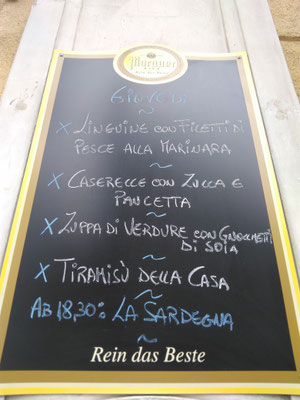 Rein das Beste
GIOVEDI
X LINGUINE CON FILETTI DI
PESCE ALLA MARINARA
X CASERECCE CON ZUCCA E
PANCETTA
X ZUPPA DI VERDURE CON GNOCCHETTI
DI SOIA
X TIRAMISÙ DELLA CASA
AB 18,30: LA SARDEGNA
Rein das Beste